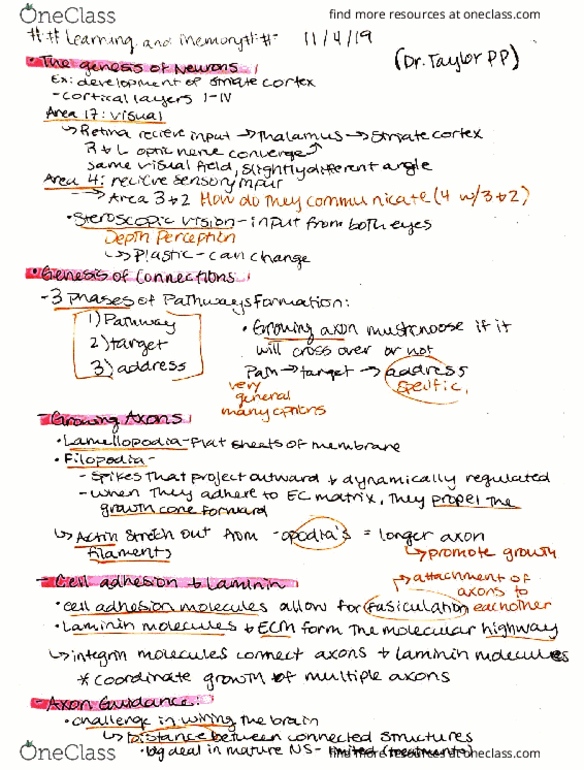 OneClass
find more resources at oneclass.com
## Learning and memory## 11/4/19
(Dr. Taylor PP)
• The genesis of Neurons
Ex: development of striate cortex
- cortical layers I-IV
Area 17: visual
↳ Retina recieve input → Thalamus → Striate cortex
R & L optic nerve converge
same visual field, slightly different angle
Area 4: recieve sensory input
→ Area 3+2 How do they communicate (4 w/3+2)
• Steroscopic vision - input from both eyes
Depth Perception
↳ Plastic - can change
• Genesis of Connections
- 3 phases of Pathways formation:
1) Pathway
2) target
3) address
• Growing axon must choose if it
will cross over or not
Path → target → address
very
general
many options
specific,
- Growing Axons
• Lamellopodia - flat sheets of membrane
• Filopodia -
- Spikes that project outward + dynamically regulated
- when they adhere to EC matrix, they propel the
growth cone forward
↳ Actin stretch out from -opodia's = longer axon
filaments
↳ promote growth
- Cell adhesion + Laminin
→ attachment of
axons to
eachother
• cell adhesion molecules allow for fasiculation
• Laminin molecules + ECM form the molecular highway
↳ integrin molecules connect axons + laminin molecules
* coordinate growth of multiple axons
- Axon Guidance:
• challenge in wiring the brain
↳ Distance between connected structures
• big deal in mature NS - limited (treatments)
OneClass
find more resources at oneclass.com